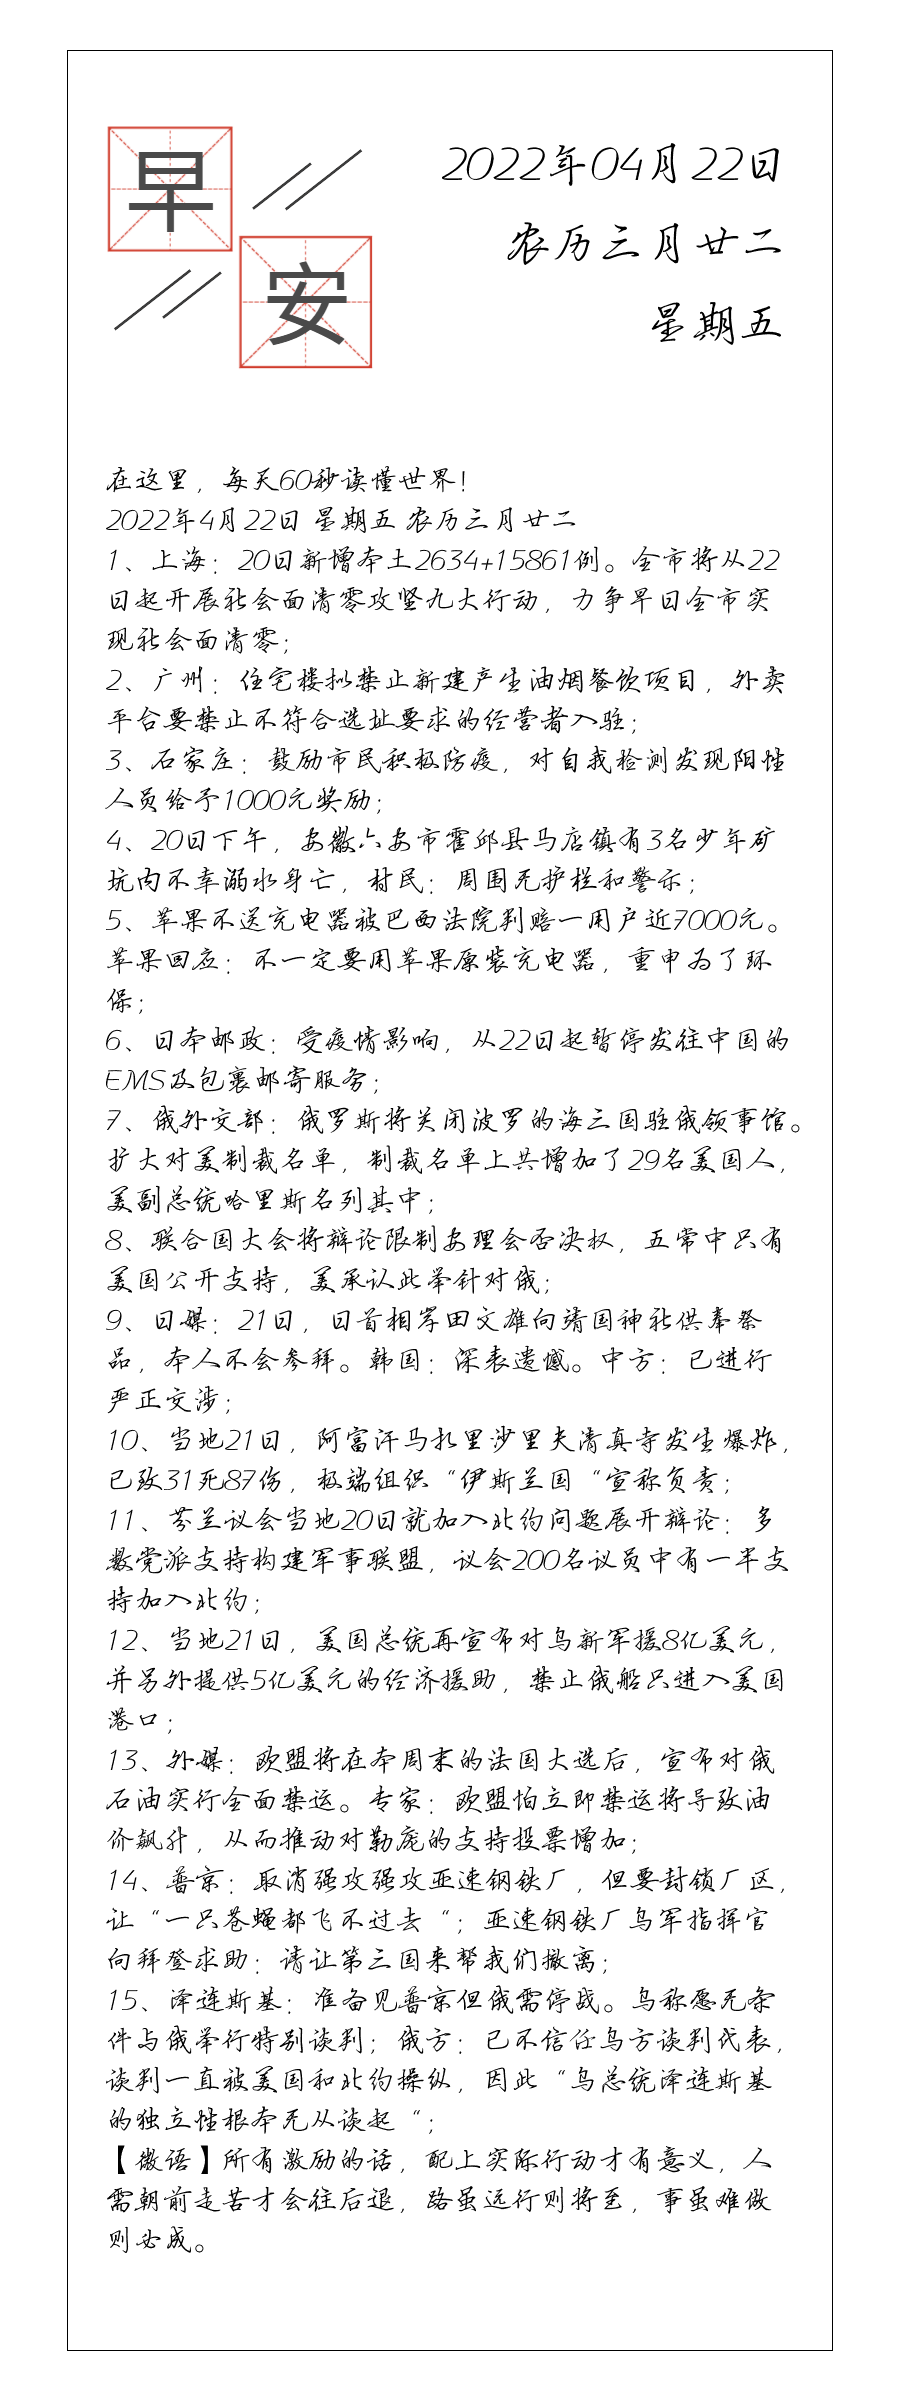 早安
2022年04月22日
农历三月廿二
星期五
在这里，每天60秒读懂世界！
2022年4月22日 星期五 农历三月廿二
1、上海：20日新增本土2634+15861例。全市将从22
日起开展社会面清零攻坚九大行动，力争早日全市实
现社会面清零；
2、广州：住宅楼拟禁止新建产生油烟餐饮项目，外卖
平台要禁止不符合选址要求的经营者入驻；
3、石家庄：鼓励市民积极防疫，对自我检测发现阳性
人员给予1000元奖励；
4、20日下午，安徽六安市霍邱县马店镇有3名少年矿
坑内不幸溺水身亡，村民：周围无护栏和警示；
5、苹果不送充电器被巴西法院判赔一用户近7000元。
苹果回应：不一定要用苹果原装充电器，重申为了环
保；
6、日本邮政：受疫情影响，从22日起暂停发往中国的
EMS及包裹邮寄服务；
7、俄外交部：俄罗斯将关闭波罗的海三国驻俄领事馆。
扩大对美制裁名单，制裁名单上共增加了29名美国人，
美副总统哈里斯名列其中；
8、联合国大会将辩论限制安理会否决权，五常中只有
美国公开支持，美承认此举针对俄；
9、日媒：21日，日首相岸田文雄向靖国神社供奉祭
品，本人不会参拜。韩国：深表遗憾。中方：已进行
严正交涉；
10、当地21日，阿富汗马扎里沙里夫清真寺发生爆炸，
已致31死87伤，极端组织“伊斯兰国“宣称负责；
11、芬兰议会当地20日就加入北约问题展开辩论：多
数党派支持构建军事联盟，议会200名议员中有一半支
持加入北约；
12、当地21日，美国总统再宣布对乌新军援8亿美元，
并另外提供5亿美元的经济援助，禁止俄船只进入美国
港口；
13、外媒：欧盟将在本周末的法国大选后，宣布对俄
石油实行全面禁运。专家：欧盟怕立即禁运将导致油
价飙升，从而推动对勒庞的支持投票增加；
14、普京：取消强攻强攻亚速钢铁厂，但要封锁厂区，
让“一只苍蝇都飞不过去“；亚速钢铁厂乌军指挥官
向拜登求助：请让第三国来帮我们撤离；
15、泽连斯基：准备见普京但俄需停战。乌称愿无条
件与俄举行特别谈判；俄方：已不信任乌方谈判代表，
谈判一直被美国和北约操纵，因此“乌总统泽连斯基
的独立性根本无从谈起“；
【微语】所有激励的话，配上实际行动才有意义，人
需朝前走苦才会往后退，路虽远行则将至，事虽难做
则必成。